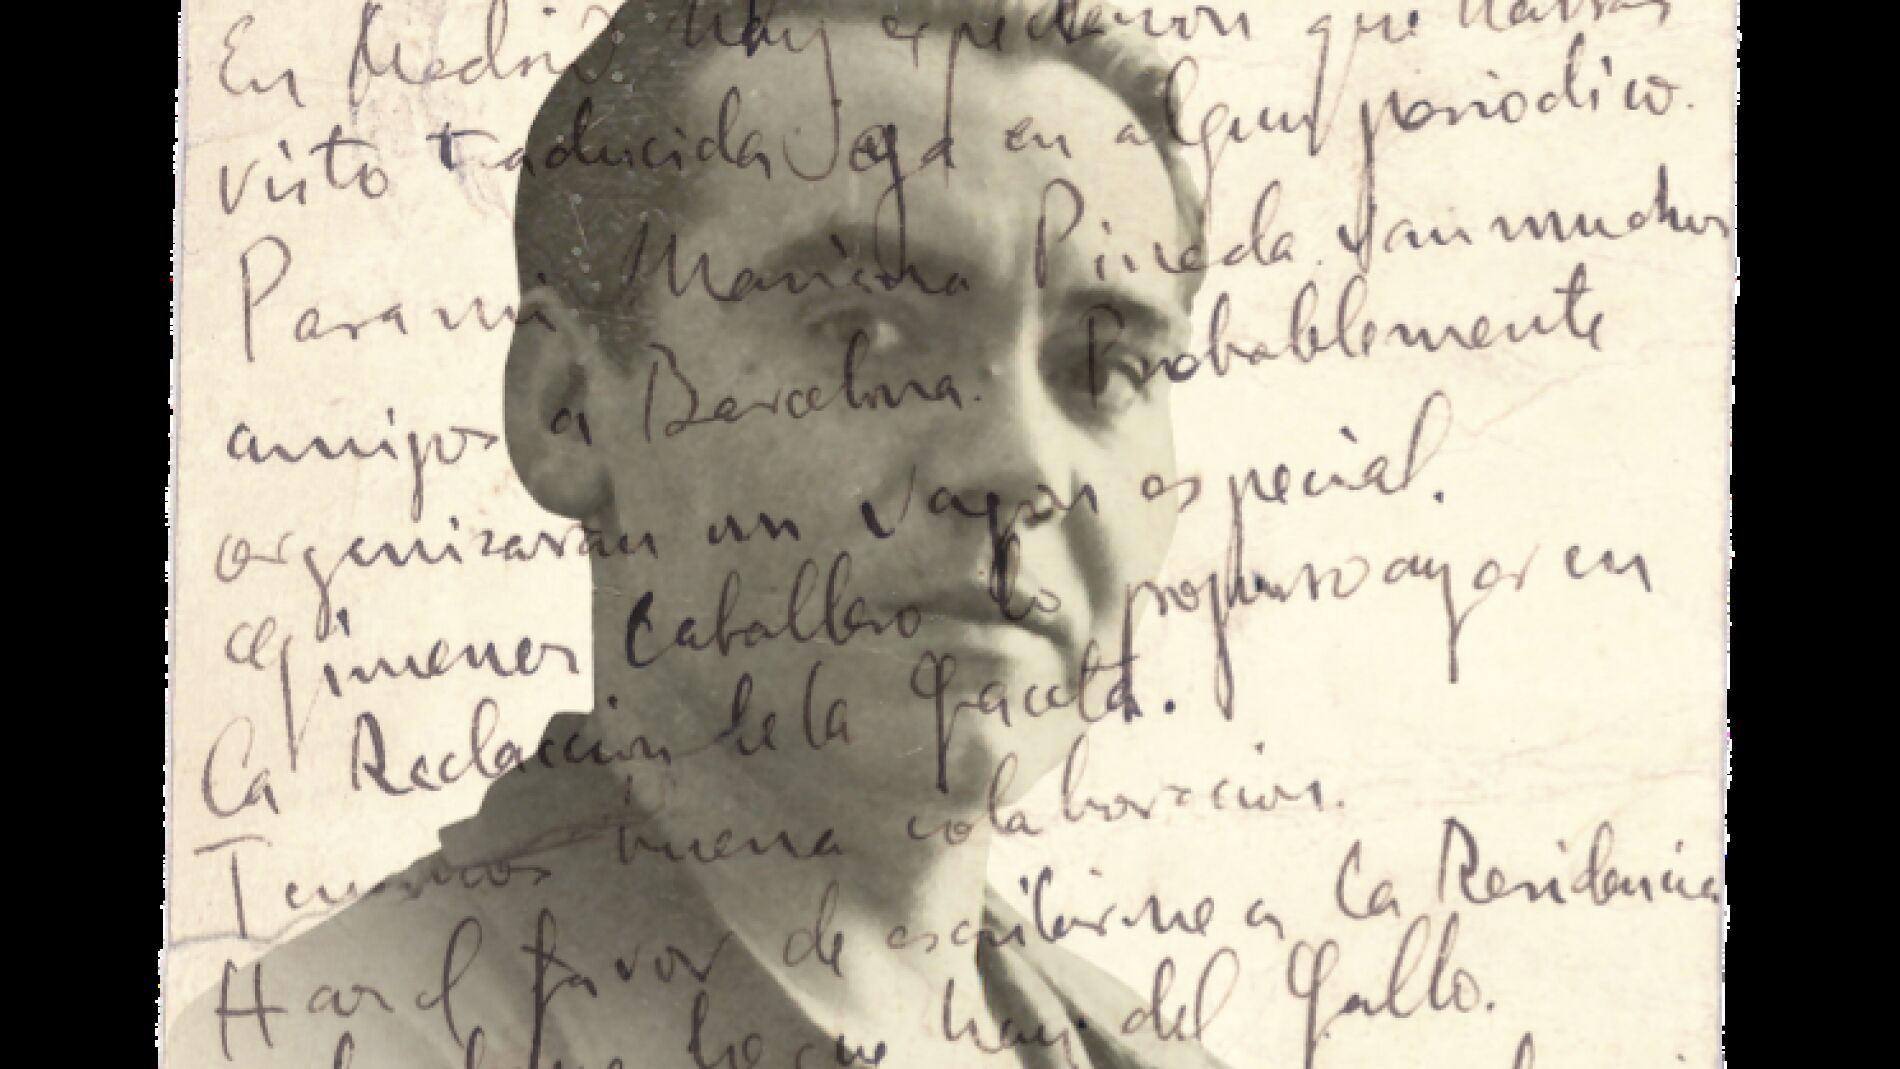 En Madrid hay expectacion que habras
visto traducida ya en algun periodico.
Para mi Mariana Pineda van muchos
amigos a Barcelona. Probablemente
organizaran un vapor especial.
Gimenez Caballero lo propuso ayer en
la Redaccion de la Gaceta.
Tenemos buena colaboracion.
Haz el favor de escribirme a la Residencia
lo que hay del Gallo.